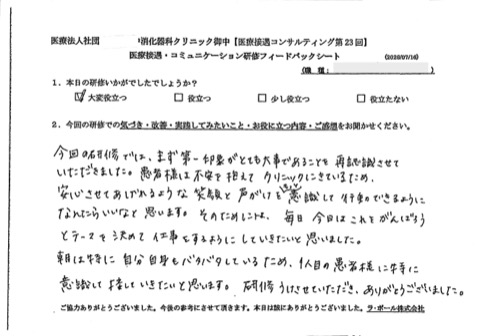 医療法人社団 消化器科クリニック御中【医療接遇コンサルティング第23回】
医療接遇・コミュニケーション研修フィードバックシート (2020/07/16)
(職 種:
1．本日の研修いかがでしたでしょうか？
☑大変役立つ □役立つ □少し役立つ □役立たない
2．今回の研修での気づき・改善・実践してみたいこと・お役に立つ内容・ご感想をお聞かせください。
今回の研修では、まず第一印象がとても大事であることを再認識させて
いただきました。患者様は不安を抱えてクリニックにきているため、
安心させてあげれるような笑顔と声がけを意識して行動できるように
なれたらいいなと思います。そのためには、毎日今日はこれをがんばろう
とテーマを決めて仕事をするようにしていきたいと思いました。
朝は特に自分自身もバタバタしているため、1人目の患者様に特に
意識して接していきたいと思います。研修うけさせていただき、ありがとうございました。
ご協力ありがとうございました。今後の参考にさせて頂きます。本日は誠にありがとうございました。ラ・ポール株式会社